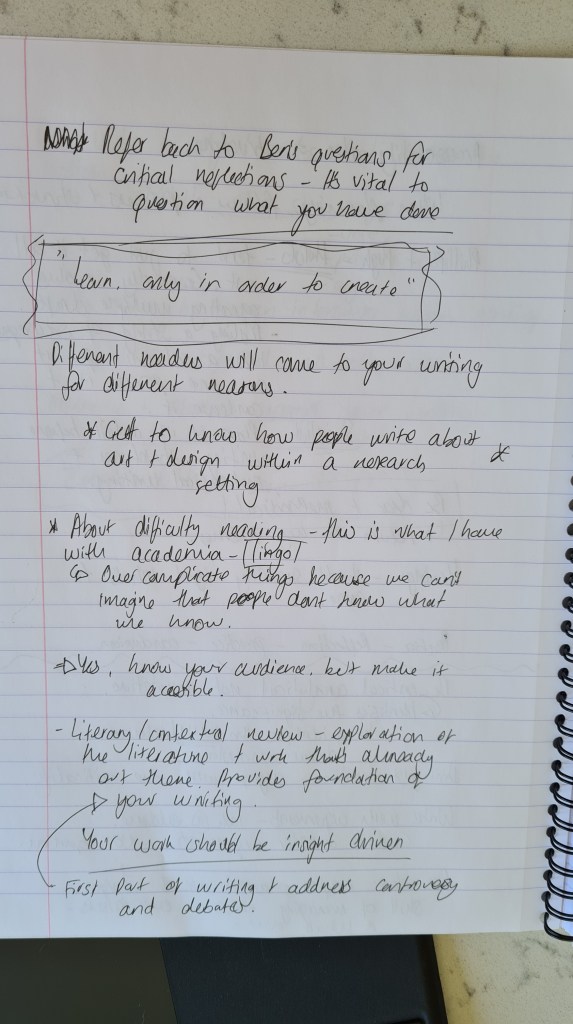 * Refer back to Ben's questions for
critical reflections - Its vital to
question what you have done
"Learn, only in order to create"
Different readers will come to your writing
for different reasons.
* Get to know how people write about *
art + design within a research
setting
* About difficulty reading - this is what I have
with academia - lingo
↳ Over complicate things because we can't
imagine that people dont know what
we know.
⇒ Yes, know your audience, but make it
accesible.
- Literary/contextual review - exploration of
the literature + work thats already
out there. Provides foundation of
→ your writing.
Your work should be insight driven
First part of writing + address controversy
and debates.